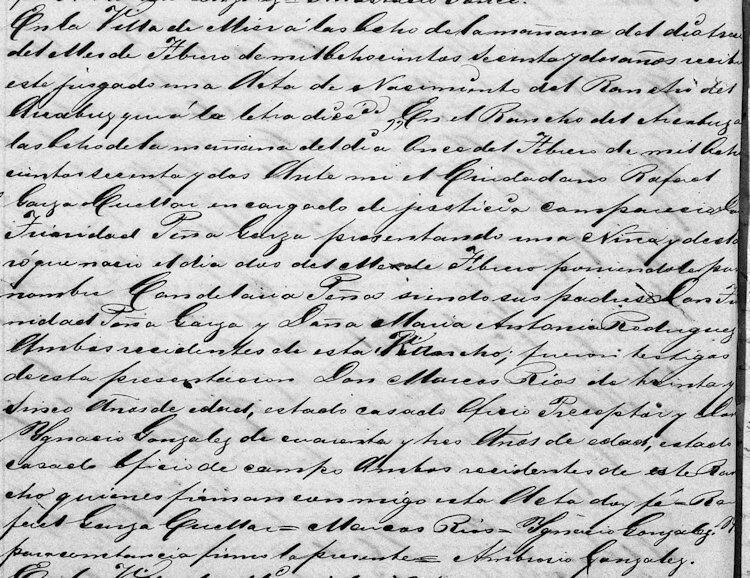 En la Villa de Mier á las ocho de la mañana del dia trece
del Mes de Febrero de mil ochocientos secenta y dos años recibi
este jusgado una Acta de Nacimiento del Rancho del
Arcabuz que á la letra dice „En el Rancho del Arcabuz a
las ocho de la mañana del dia Once del Febrero de mil ocho
cientos secenta y dos Ante mi el Ciudadano Rafael
Garza Cuellar encargado de justicia comparecio Don
Trinidad Peña Garza presentando una Niña y decla
ro que nacio el dia dos del Mes de Febrero poniendole por
nombre Candelaria Peña siendo sus padres Don Tri
nidad Peña Garza y Doña Maria Antonia Rodriguez
Ambos residentes de este Rancho; fueron testigos
de esta presentacion Don Marcos Rios de treinta y
sinco Años de edad, estado casado Oficio Preceptor y Don
Ygnacio Gonzalez de cuarenta y tres Años de edad, estado
casado Oficio de campo Ambos residentes de este Ran
cho, quienes firman conmigo esta Acta doy fé = Ra
fael Garza Cuellar = Marcos Rios = Ygnacio Gonzalez.
para constancia firmo la presente = Ambrocio Gonzalez.